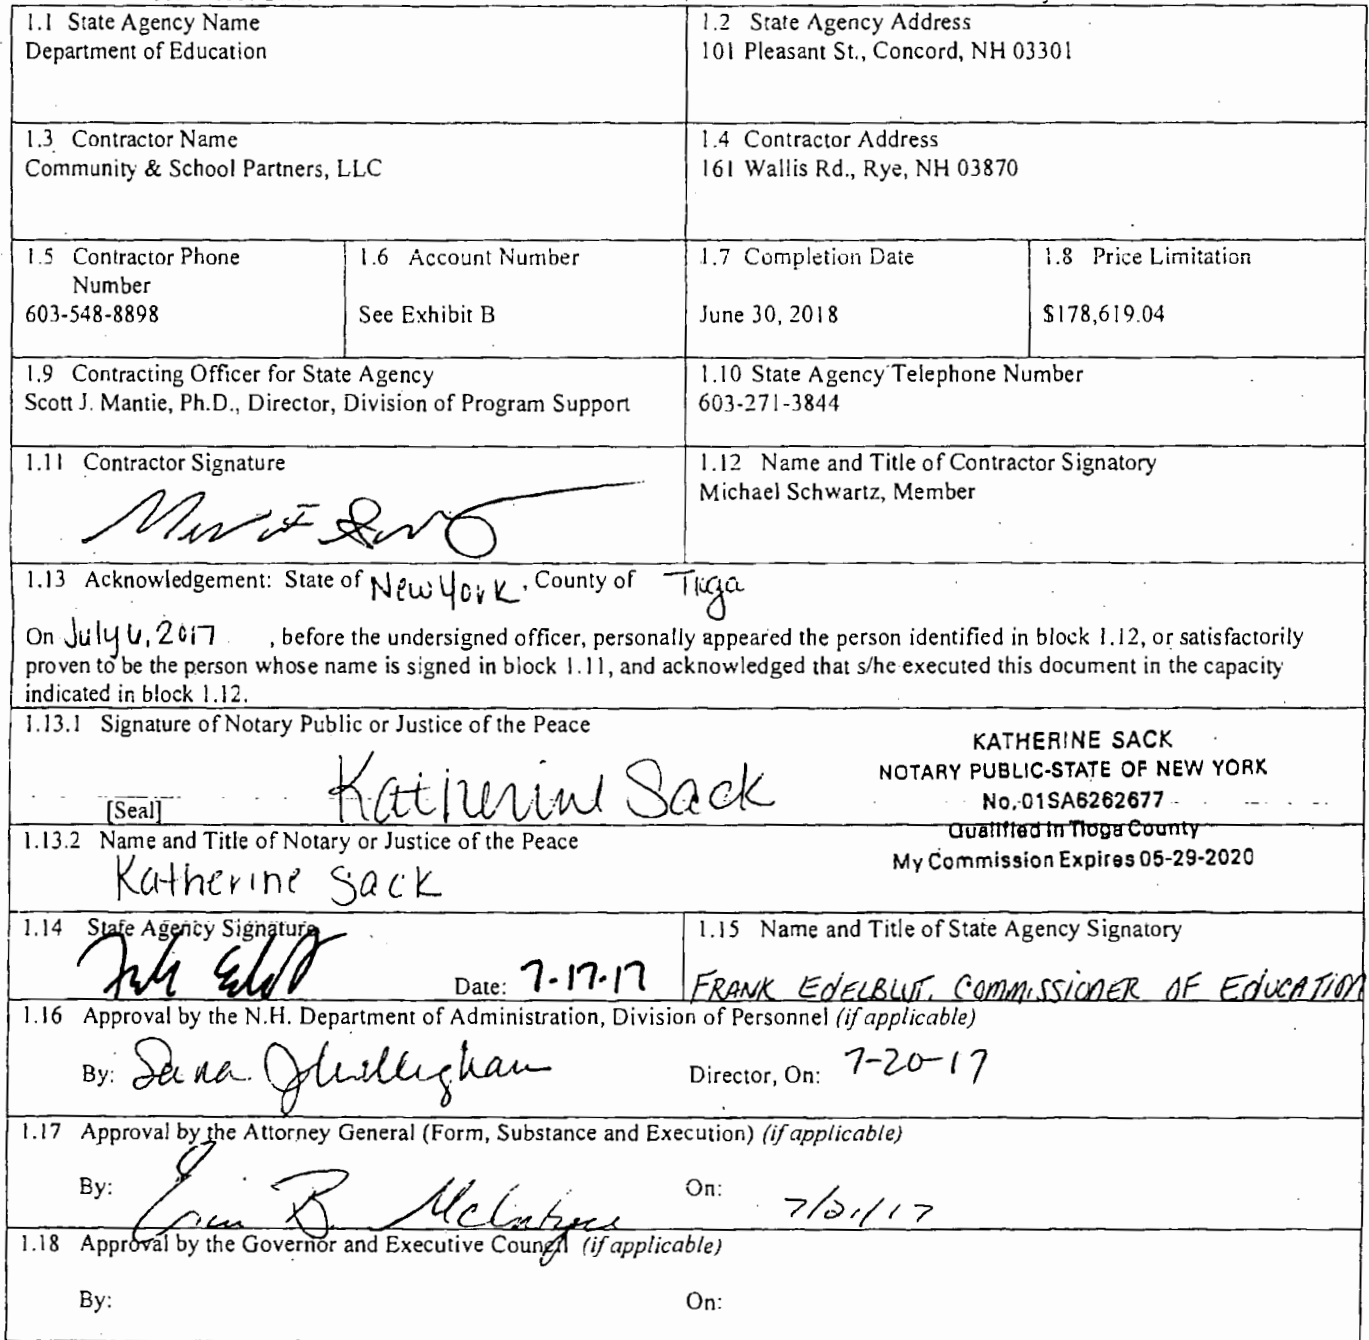 1.1 State Agency Name
Department of Education
1.2 State Agency Address
101 Pleasant St., Concord, NH 03301
1.3 Contractor Name
Community & School Partners, LLC
1.4 Contractor Address
161 Wallis Rd., Rye, NH 03870
1.5 Contractor Phone
Number
603-548-8898
1.6 Account Number
See Exhibit B
1.7 Completion Date
June 30, 2018
1.8 Price Limitation
$178,619.04
1.9 Contracting Officer for State Agency
Scott J. Mantie, Ph.D., Director, Division of Program Support
1.10 State Agency Telephone Number
603-271-3844
1.11 Contractor Signature
1.12 Name and Title of Contractor Signatory
Michael Schwartz, Member
1.13 Acknowledgement: State of New York, County of Tioga
On July 6, 2017 , before the undersigned officer, personally appeared the person identified in block 1.12, or satisfactorily
proven to be the person whose name is signed in block 1.11, and acknowledged that s/he executed this document in the capacity
indicated in block 1.12.
1.13.1 Signature of Notary Public or Justice of the Peace
Katherine Sack
[Seal]
KATHERINE SACK
NOTARY PUBLIC-STATE OF NEW YORK
No. 01SA6262677
Qualified in Tioga County
My Commission Expires 05-29-2020
1.13.2 Name and Title of Notary or Justice of the Peace
Katherine Sack
1.14 State Agency Signature
Date: 7-17-17
1.15 Name and Title of State Agency Signatory
FRANK EDELBLUT, COMMISSIONER OF EDUCATION
1.16 Approval by the N.H. Department of Administration, Division of Personnel (if applicable)
By:
Director, On: 7-20-17
1.17 Approval by the Attorney General (Form, Substance and Execution) (if applicable)
By: B. McIntyre
On: 7/21/17
1.18 Approval by the Governor and Executive Council (if applicable)
By:
On: